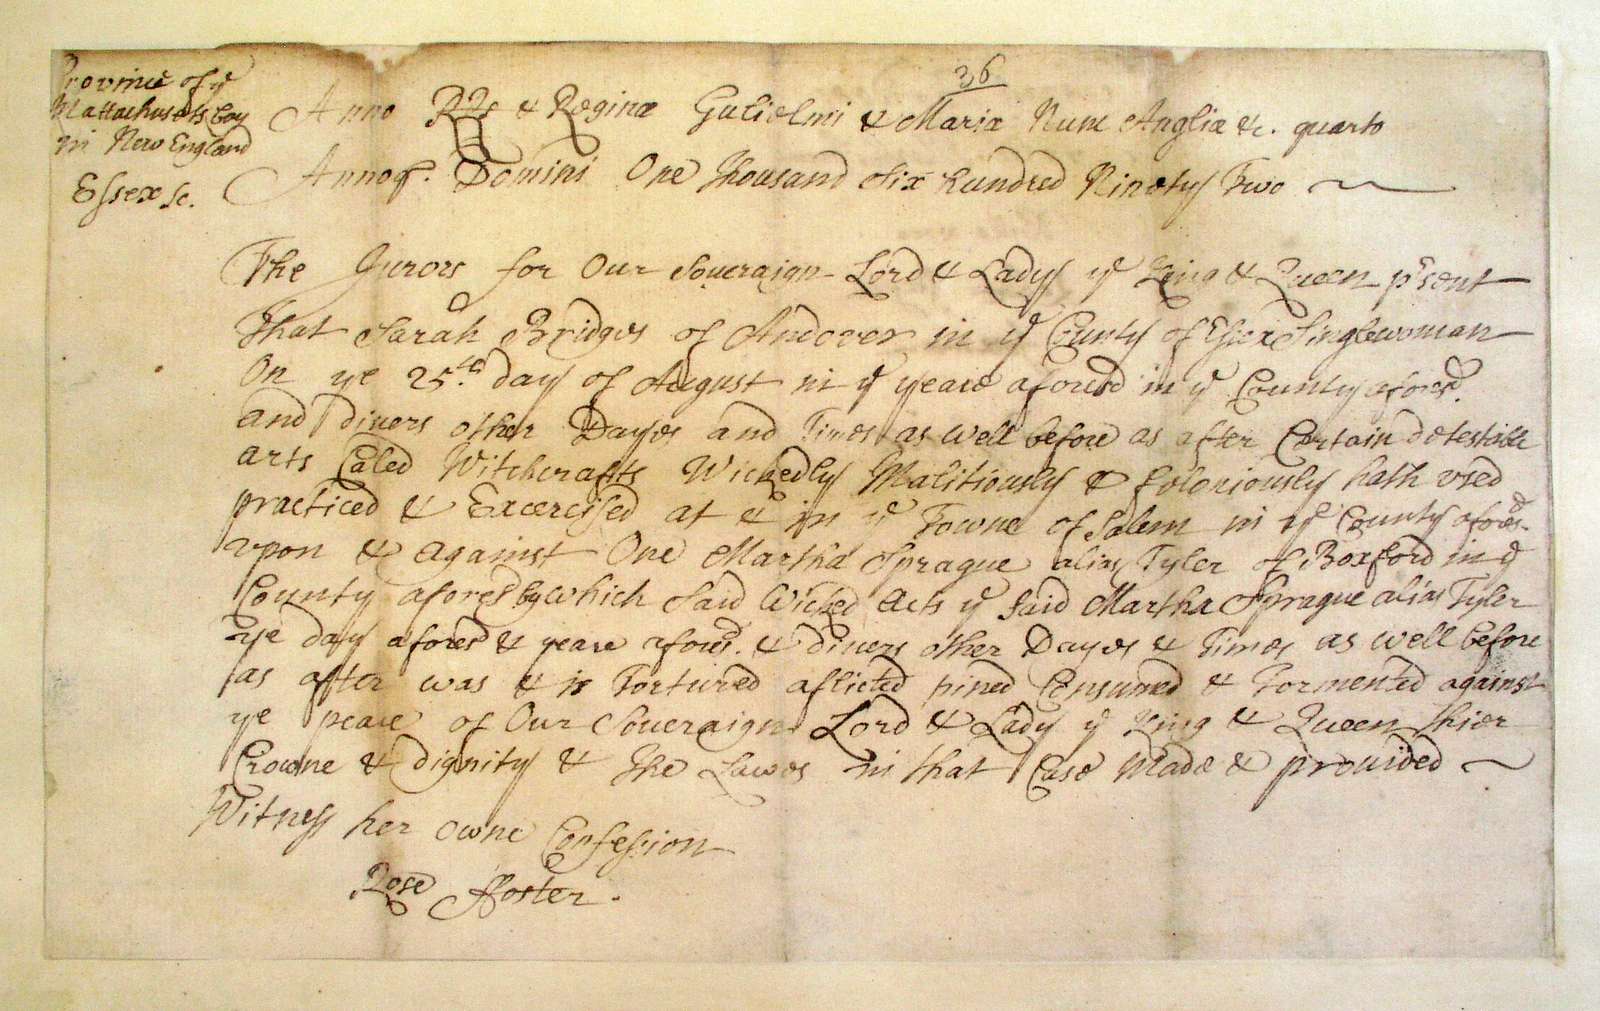 36
Province of ye
Mattachusetts bay
in New England
Essex sc.
Anno RRs & Reginæ Gulielmi & Mariæ Nunc Angliæ &c. quarto
Annoq. Domini One Thousand Six hundred Ninety Two
The Jurors for Our Soueraign Lord & Lady ye King & Queen prsent
That Sarah Bridges of Andover in ye County of Essex Singlewoman
On ye 25th day of August in ye yeare aforesd in ye County aforesd.
and diuers other Dayes and Times as well before as after Certain detestable
arts Caled Witchcrafts Wickedly Malitiously & feloniously hath vsed
practiced & Exercised at & in ye Towne of Salem in ye County aforesd.
vpon & against One Martha Sprague alias Tyler of Boxford in ye
County aforesd by which Said Wicked Acts ye Said Martha Sprague alias Tyler
ye day aforesd & yeare aforesd. & diuers other Dayes & Times as well before
as after was & is Tortured aflicted pined Consumed & Tormented against
ye peace of Our Soueraign Lord & Lady ye King & Queen thier
Crowne & dignity & the Lawes in that Case Made & prouided
Witness her owne Confession
Rose Foster.